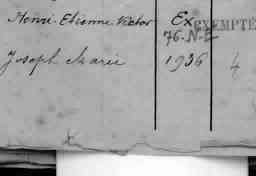 Henri-Etienne-Victor Ex EXEMPTÉ
76.N-E
Joseph Marie 1936 4